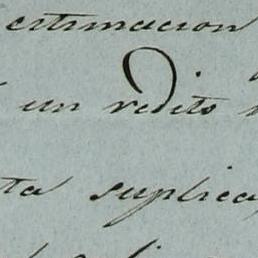 estimacion
un redito
ta suplica